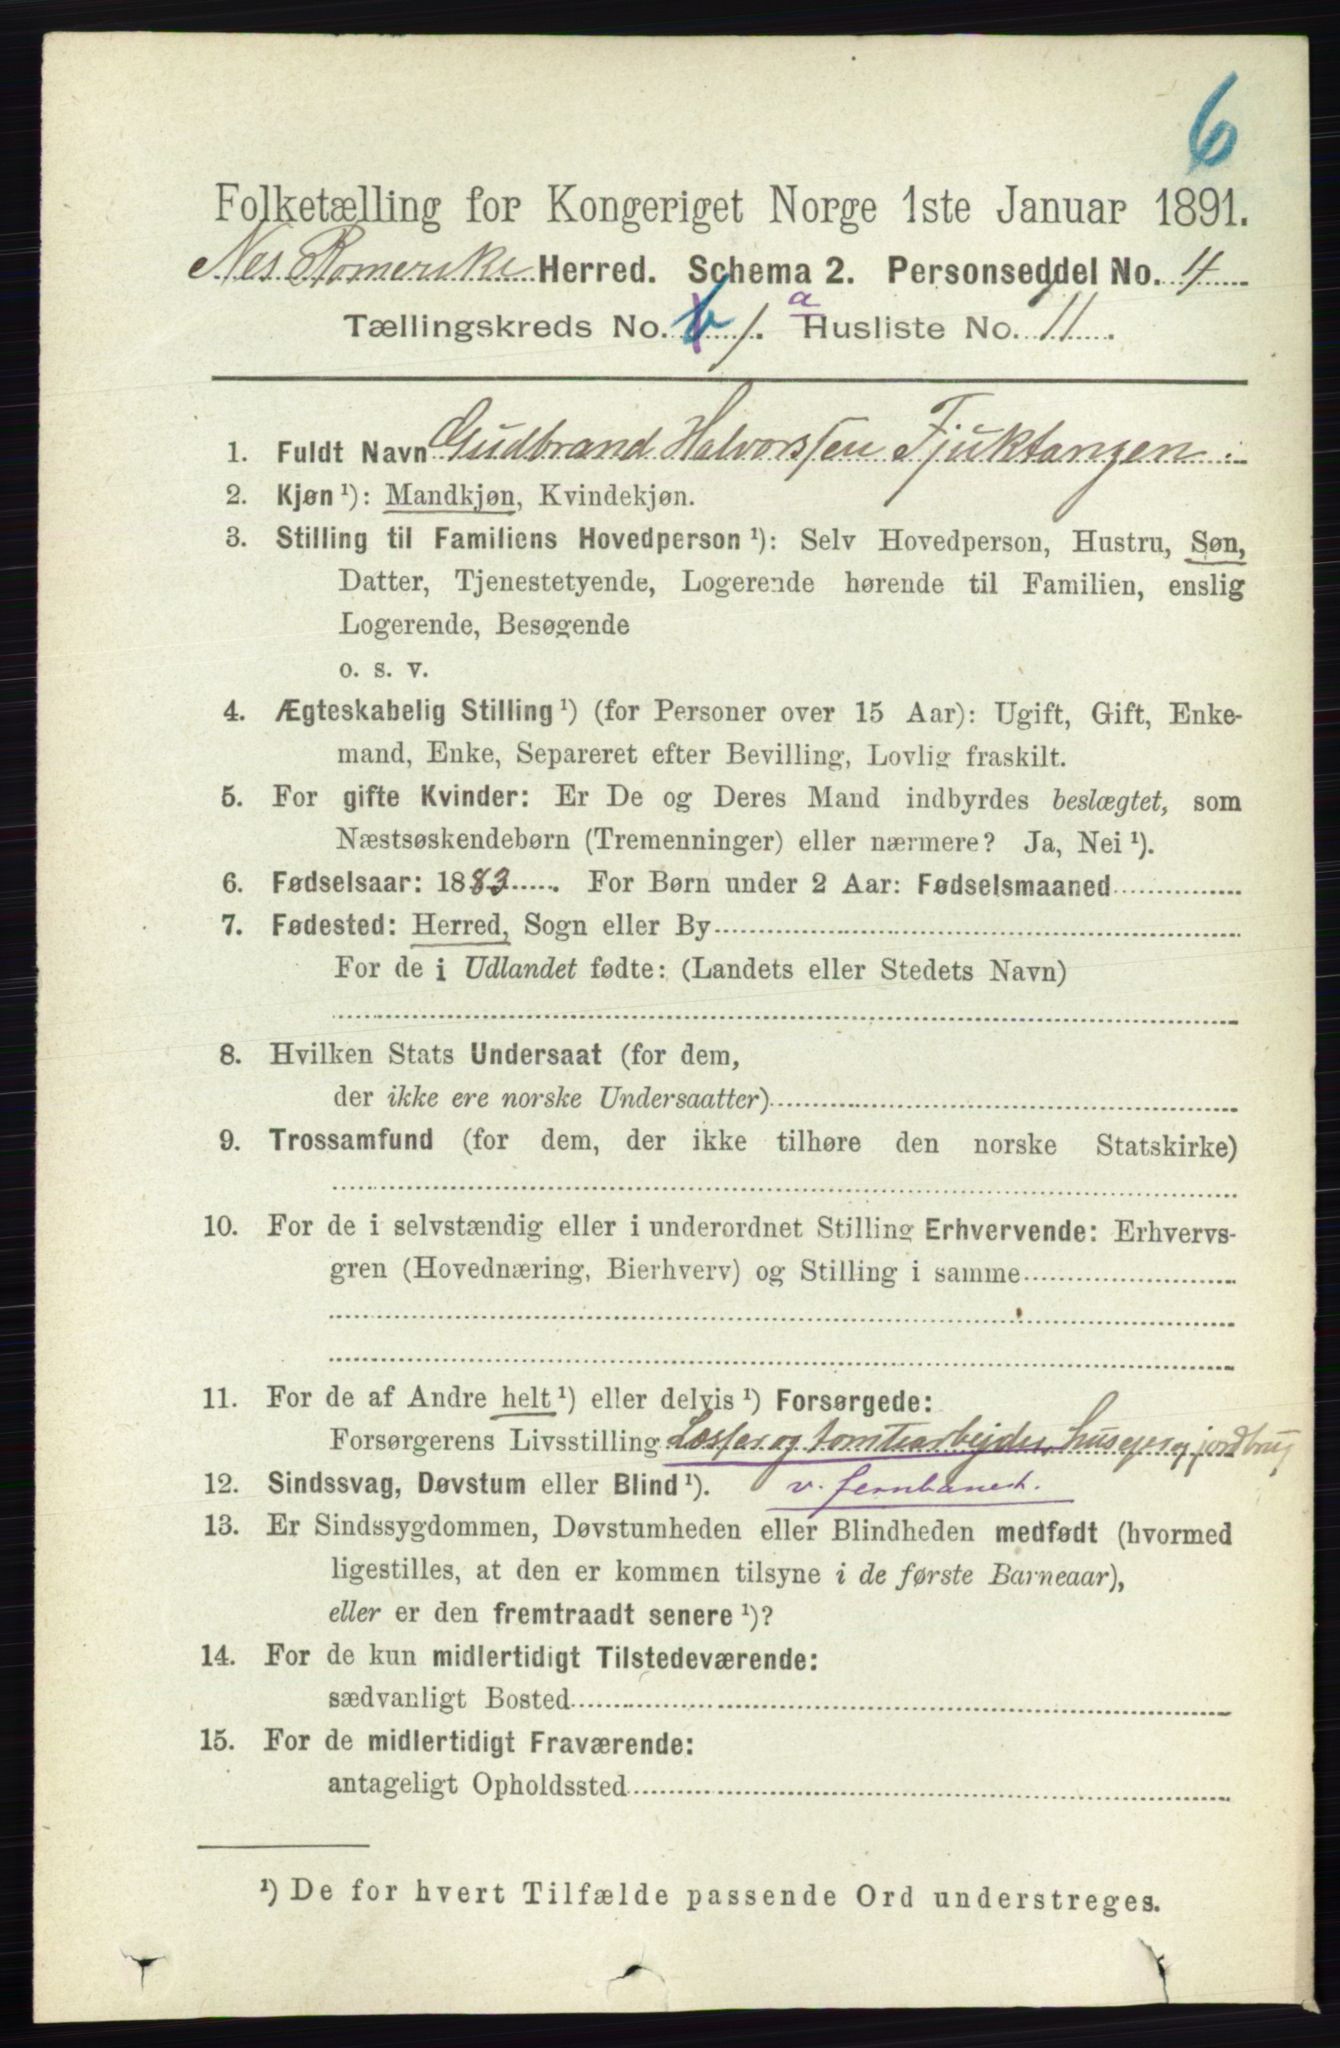 6
Folketælling for Kongeriget Norge 1ste Januar 1891.
Nes Romerike Herred. Schema 2. Personseddel No. 4
Tællingskreds No. 6 1. a Husliste No. 11.
1. Fuldt Navn Gudbrand Halvorssen Fjuktangen
2. Kjøn ¹): Mandkjøn, Kvindekjøn.
3. Stilling til Familiens Hovedperson ¹): Selv Hovedperson, Hustru, Søn,
Datter, Tjenestetyende, Logerende hørende til Familien, enslig
Logerende, Besøgende
o. s. v.
4. Ægteskabelig Stilling ¹) (for Personer over 15 Aar): Ugift, Gift, Enke-
mand, Enke, Separeret efter Bevilling, Lovlig fraskilt.
5. For gifte Kvinder: Er De og Deres Mand indbyrdes beslægtet, som
Næstsøskendebørn (Tremenninger) eller nærmere? Ja, Nei ¹).
6. Fødselsaar: 1883. For Børn under 2 Aar: Fødselsmaaned
7. Fødested: Herred, Sogn eller By
For de i Udlandet fødte: (Landets eller Stedets Navn)
8. Hvilken Stats Undersaat (for dem,
der ikke ere norske Undersaatter)
9. Trossamfund (for dem, der ikke tilhøre den norske Statskirke)
10. For de i selvstændig eller i underordnet Stilling Erhvervende: Erhvervs-
gren (Hovednæring, Bierhverv) og Stilling i samme
11. For de af Andre helt ¹) eller delvis ¹) Forsørgede:
Forsørgerens Livsstilling Lösser og tomtearbejder, huseier og jordbrug
12. Sindssvag, Døvstum eller Blind ¹). v. jernbanest.
13. Er Sindssygdommen, Døvstumheden eller Blindheden medfødt (hvormed
ligestilles, at den er kommen tilsyne i de første Barneaar),
eller er den fremtraadt senere ¹)?
14. For de kun midlertidigt Tilstedeværende:
sædvanligt Bosted
15. For de midlertidigt Fraværende:
antageligt Opholdssted
¹) De for hvert Tilfælde passende Ord understreges.